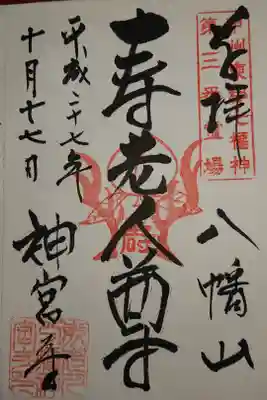 甲州東郡七福神
第三番霊場
奉拝
八幡山
寿老人尊
平成二十七年
十月十七日
神宮寺